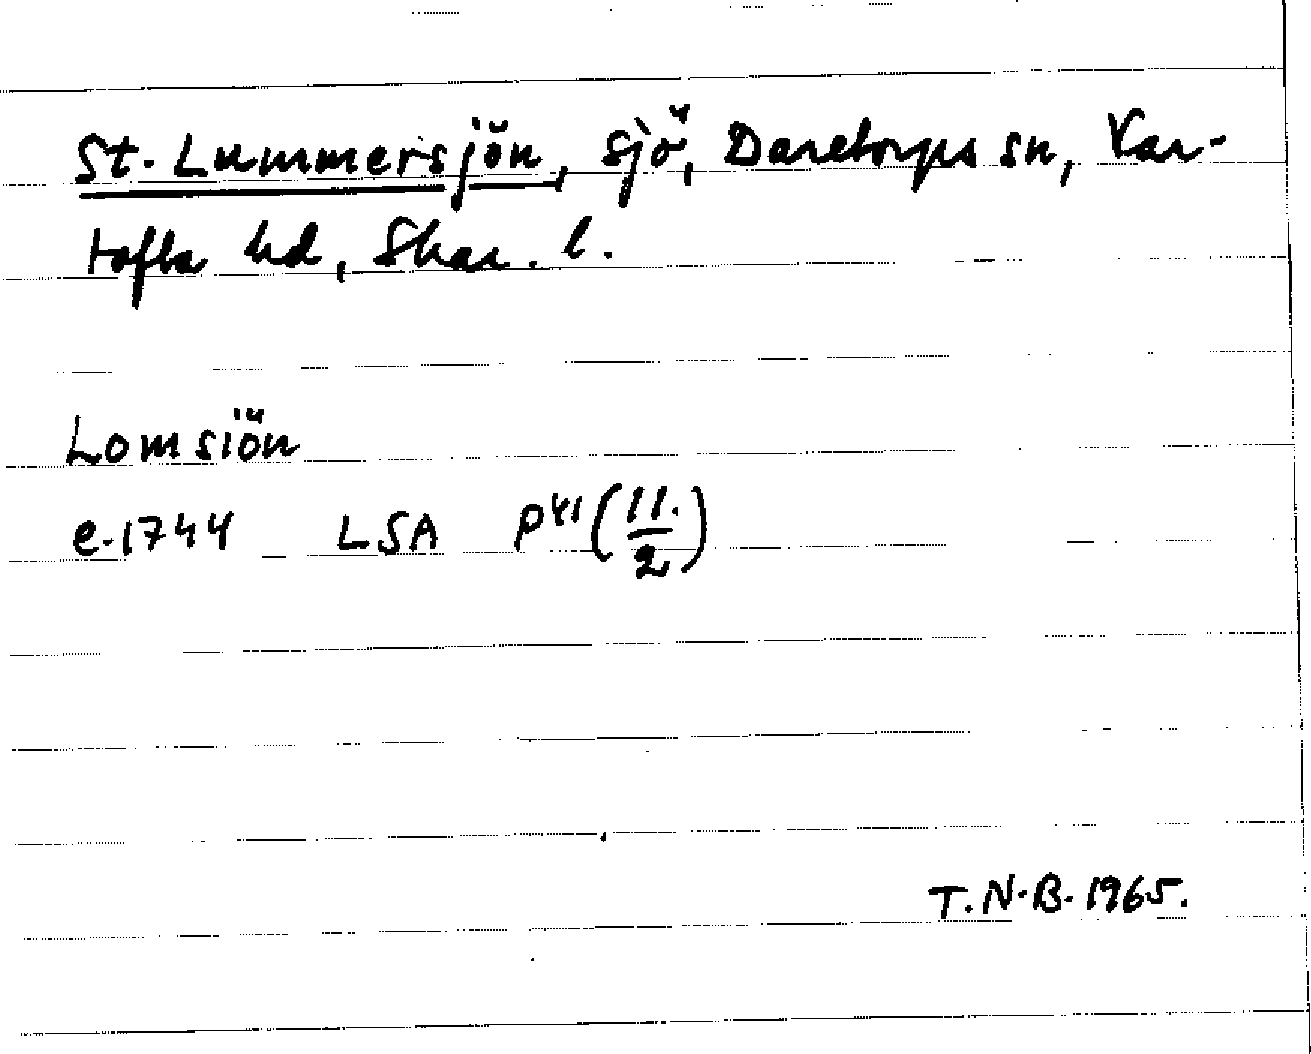 St. Lummersjön, sjö, Daretorps sn, Var-
tofta hd, Skar. l.
Lomsiön
e. 1744 LSA P41 (11./2)
T.N.B. 1965.